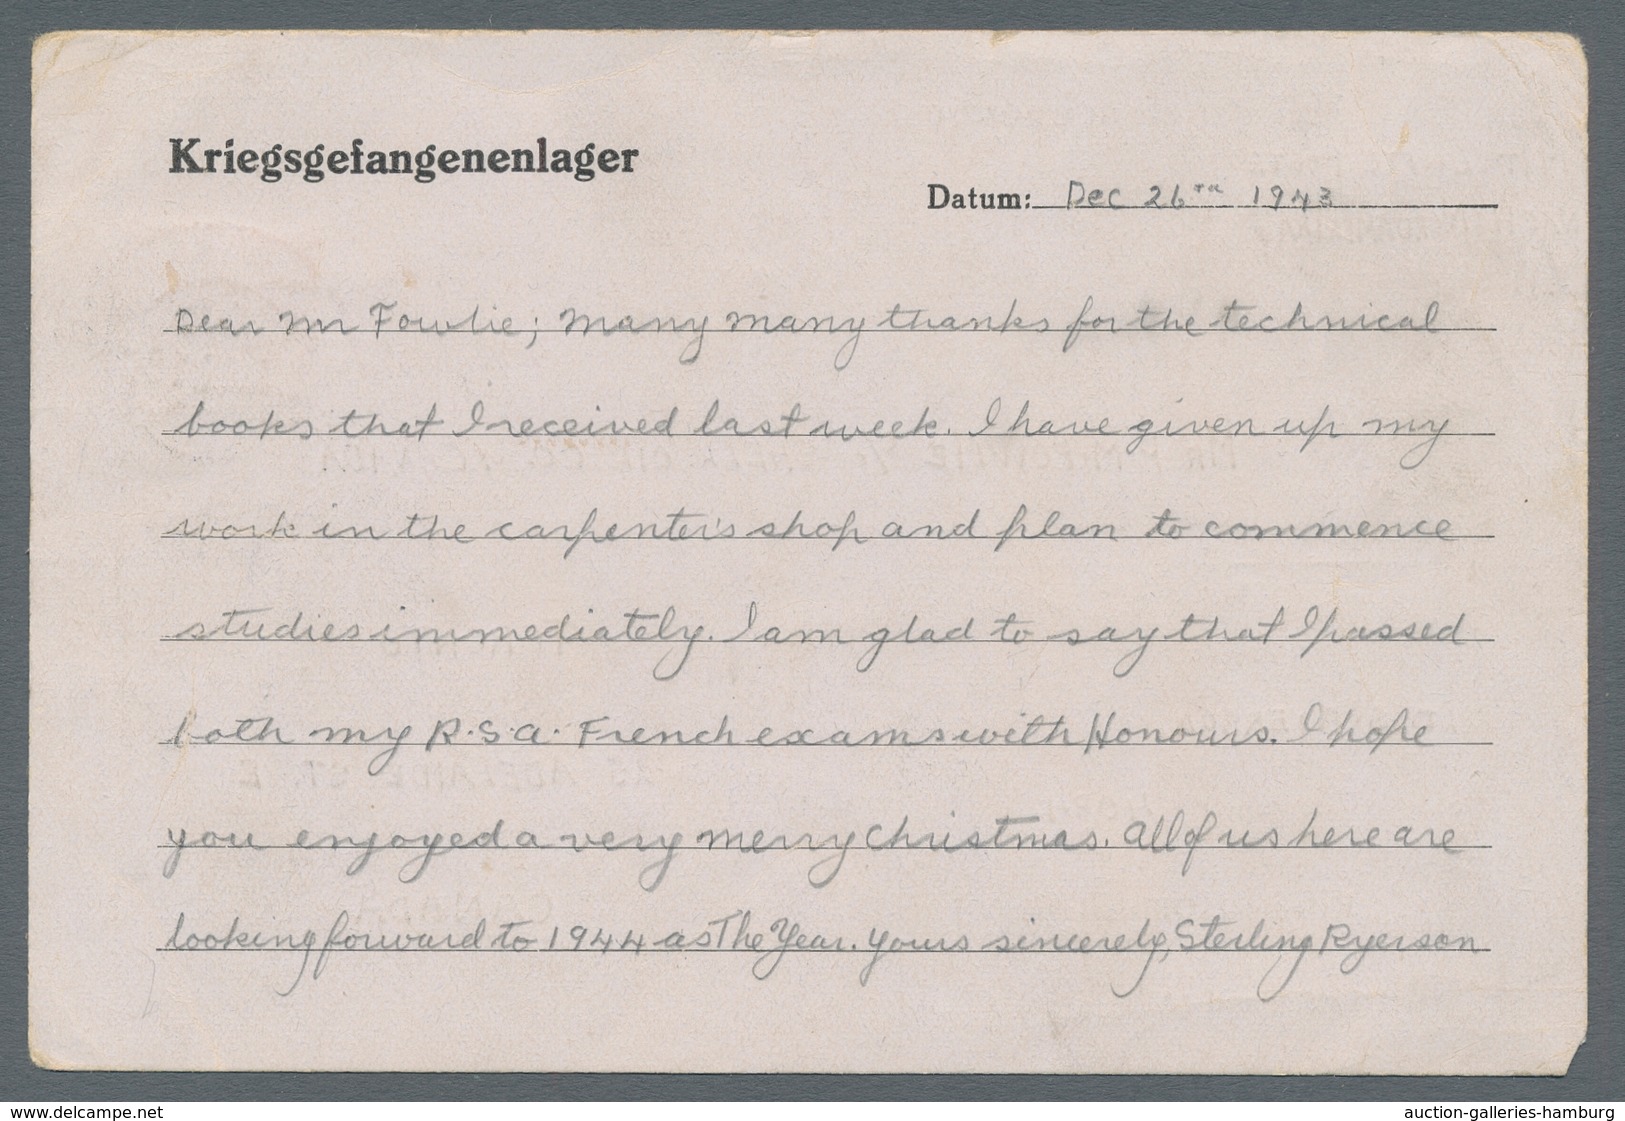 Kriegsgefangenenlager
Datum: Dec 26th 1943
Dear Mr Fowlie; Many many thanks for the technical
books that I received last week. I have given up my
work in the carpenter's shop and plan to commence
studies immediately. I am glad to say that I passed
both my R.S.A. French exams with Honours. I hope
you enjoyed a very merry Christmas. All of us here are
looking forward to 1944 as The Year. Yours sincerely, Sterling Ryerson
www.delcampe.net
auction-galleries-hamburg